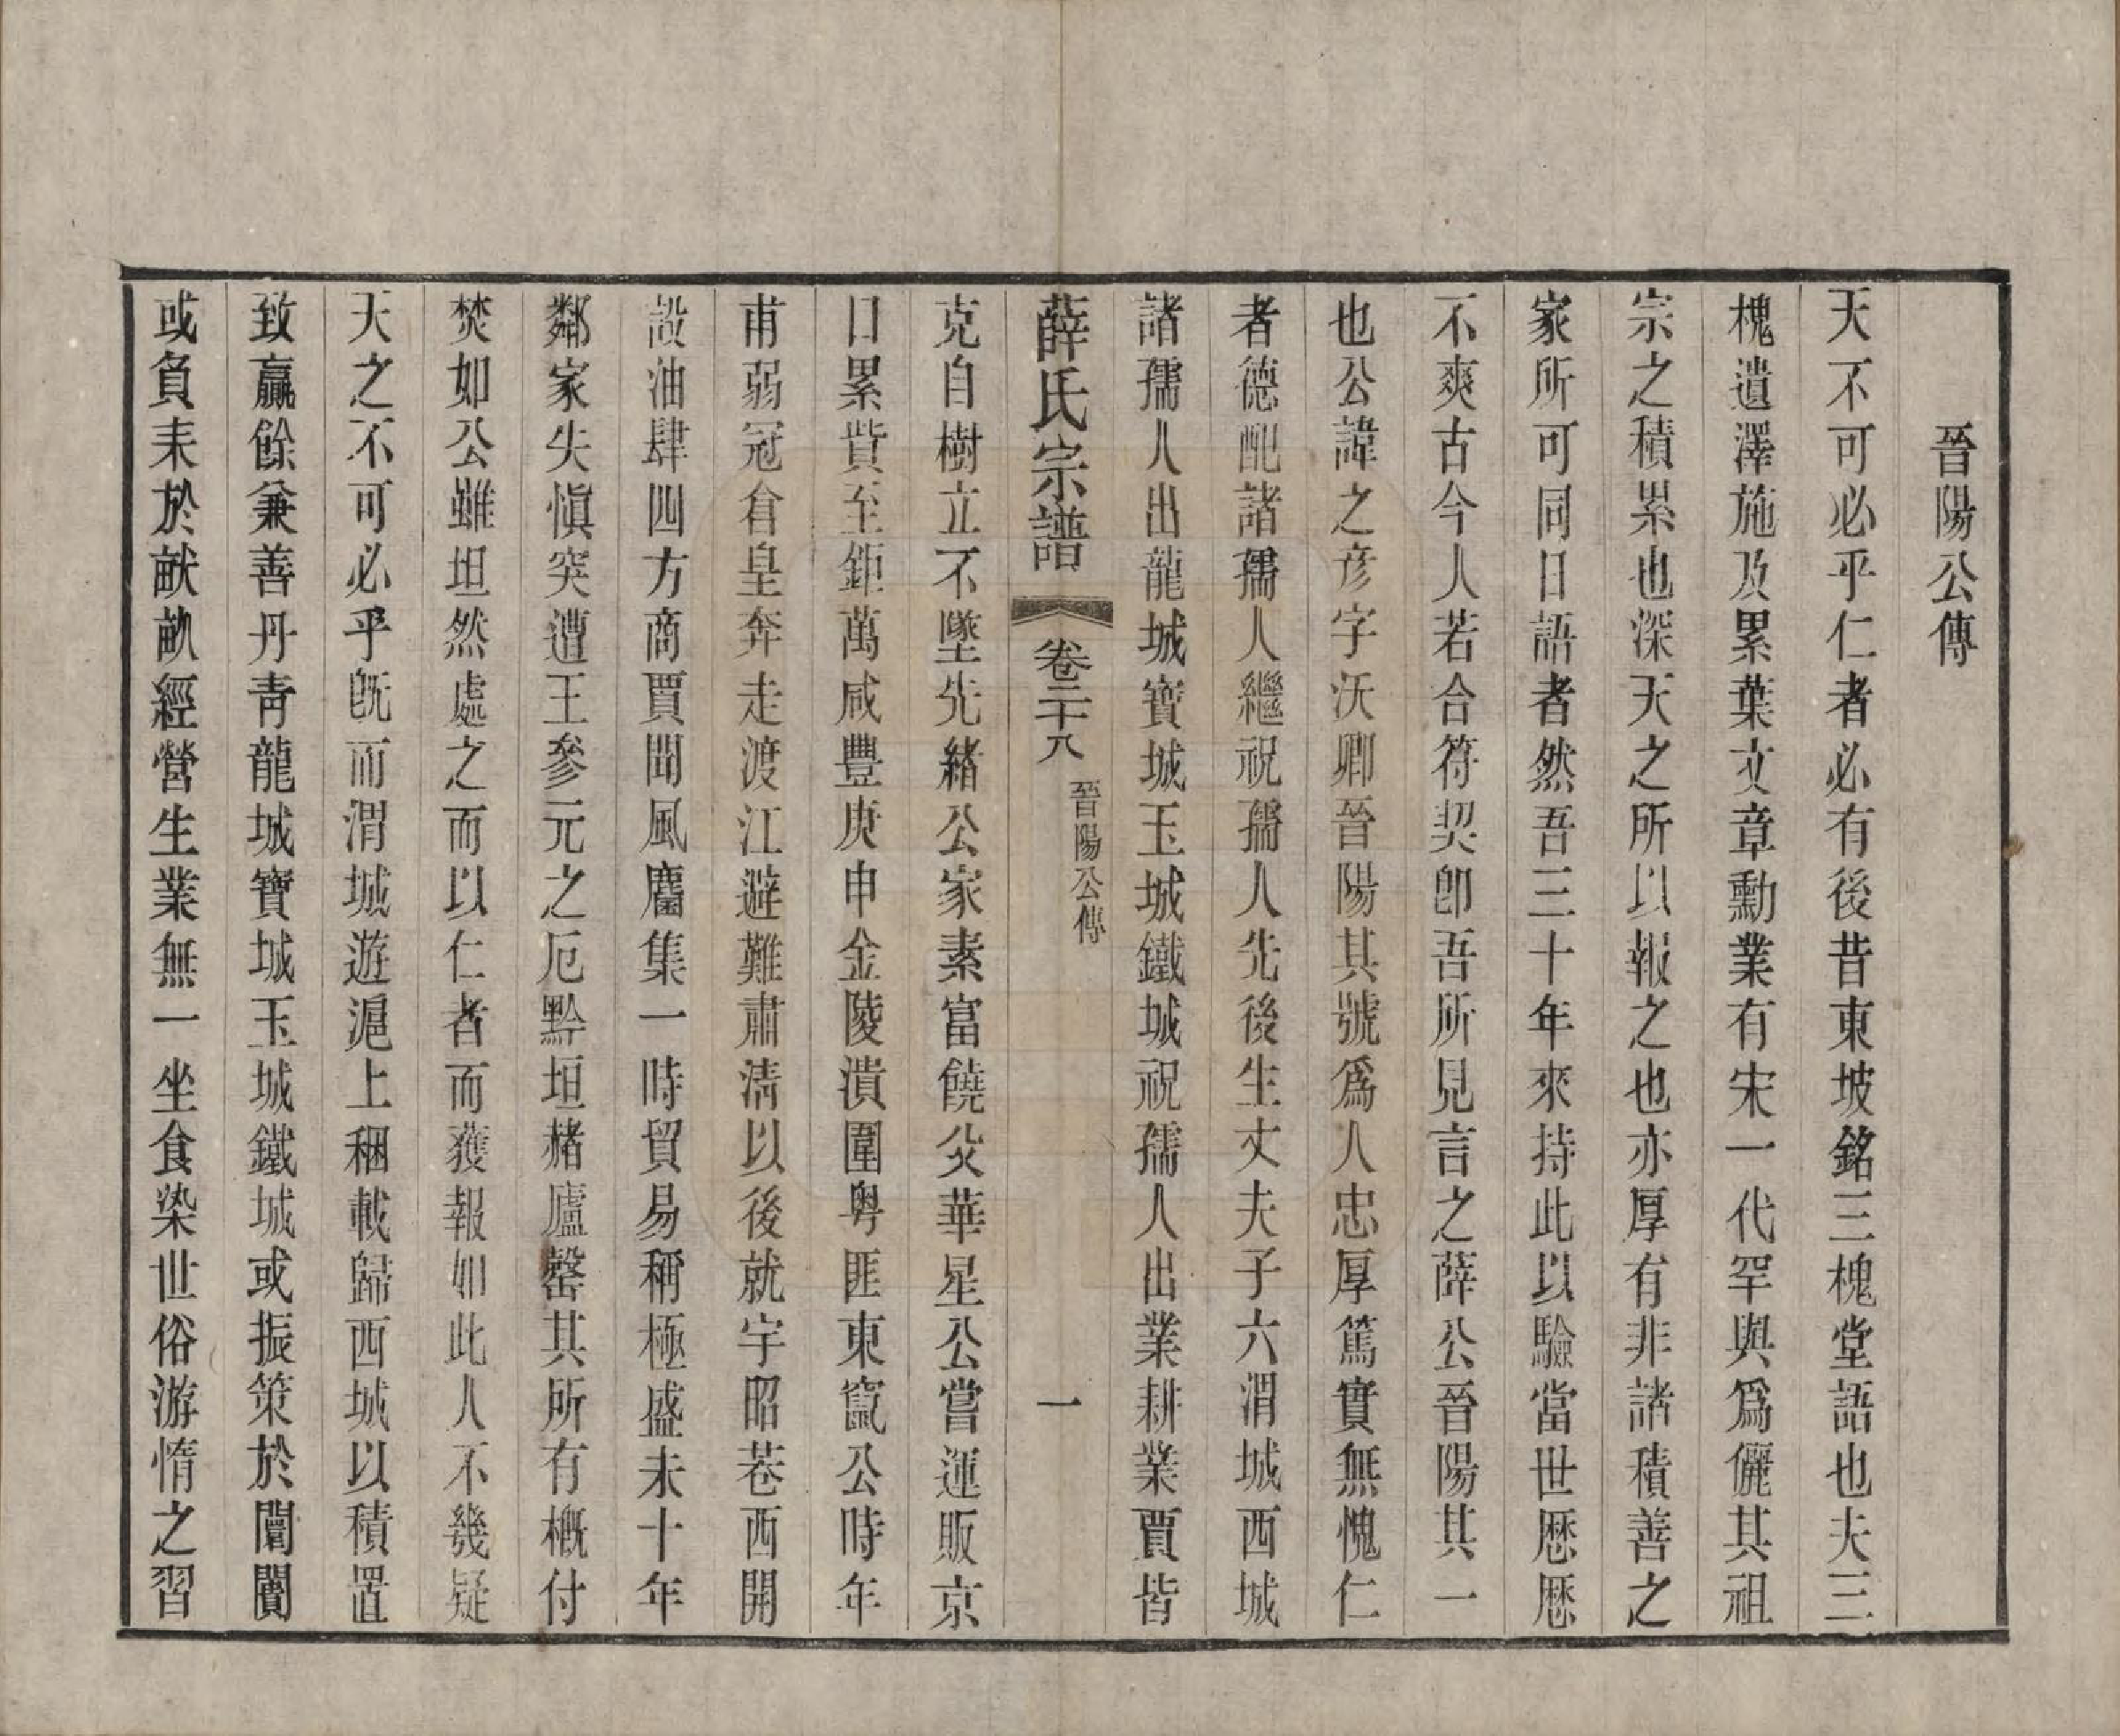 晉陽公傳
天不可必乎仁者必有後昔東坡銘三槐堂語也夫三
槐遺澤施及累葉文章勳業有宋一代罕與爲儷其祖
宗之積累也深天之所以報之也亦厚有非諸積善之
家所可同日語者然吾三十年來持此以驗當世歷歷
不爽古今人若合符契卽吾所見言之薛公晉陽其一
也公諱之彦字沃卿晉陽其號爲人忠厚篤實無愧仁
者德配諸孺人繼祝孺人先後生丈夫子六渭城西城
諸孺人出龍城寶城玉城鐵城祝孺人出業耕業賈皆
薛氏宗譜
卷二十八
晉陽公傳
一
克自樹立不墜先緒公家素富饒父華星公嘗運販京
口累貲至鉅萬咸豐庚申金陵潰圍粤匪東竄公時年
甫弱冠倉皇奔走渡江避難肅淸以後就宇昭巷西開
設油肆四方商賈聞風麕集一時貿易稱極盛未十年
鄰家失愼突遭王參元之厄黔垣赭廬罄其所有槪付
焚如公雖坦然處之而以仁者而獲報如此人不幾疑
天之不可必乎旣而渭城遊滬上稛載歸西城以積置
致贏餘兼善丹靑龍城寶城玉城鐵城或振策於闤闠
或負耒於畎畝經營生業無一坐食染世俗游惰之習